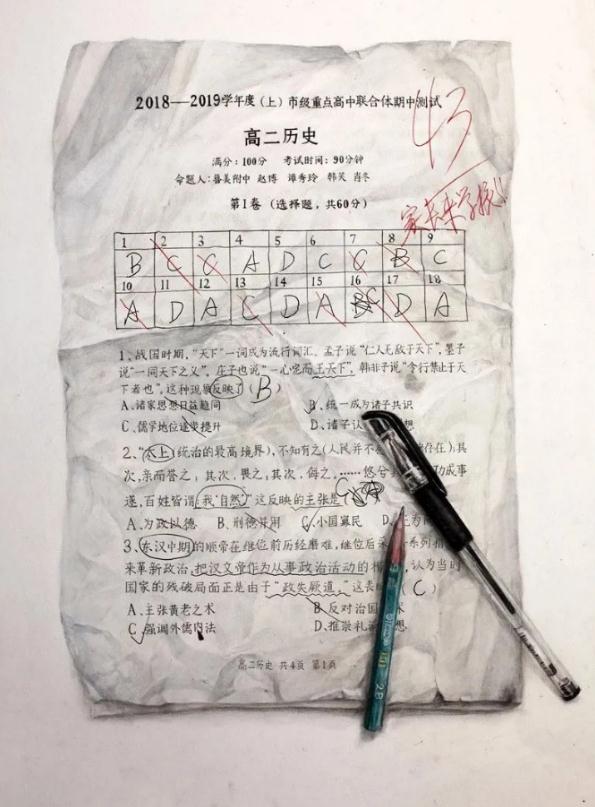 2018——2019学年度（上）市级重点高中联合体期中测试
43
高二历史
满分：100分 考试时间：90分钟
家长来学校!!
第Ⅰ卷（选择题，共60分）
1 2 3 4 5 6 7 8 9
B C C A D C C B C
10 11 12 13 14 15 16 17 18
A D A C D A C D A
1、战国时期，“天下”一词成为流行词汇、孟子说“仁人无敌于天下”，墨子
说“一同天下之义”，庄子也说“一心定而王天下”，韩非子说“令行禁止于天
下者也”，这种现象反映了（B）
A、诸家思想日益趋同 B、统一成为诸子共识
C、儒学地位逐步提升 D、诸子认 想
2、“太上（统治的最高境界），不知有之（人民并不 存在）；其
次，亲而誉之；其次，畏之；其次，侮之。……悠兮 功成事
遂，百姓皆谓：我‘自然’”这反映的主张是（
A、为政以德 B、刑德并用 C、小国寡民 D、
3、东汉中期的顺帝在继位前历经磨难，继位后采 系列措
来革新政治，把汉文学作为从事政治活动的 ，认为当时
国家的残破局面正是由于“政失厥道，”这表 （C）
A、主张黄老之术 B、反对治国 术
C、强调外儒内法 D、推崇礼 想
高二历史 共4页 第1页
2B